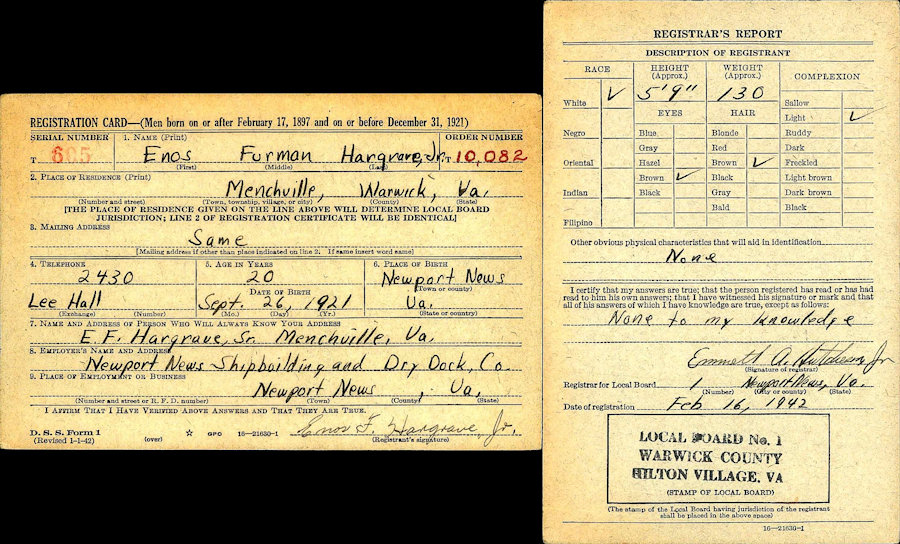 REGISTRATION CARD—(Men born on or after February 17, 1897 and on or before December 31, 1921)
SERIAL NUMBER
1. NAME (Print)
ORDER NUMBER
T 605
Enos Furman Hargrave, Jr.
T 10,082
(First) (Middle) (Last)
2. PLACE OF RESIDENCE (Print)
Menchville, Warwick, Va.
(Number and street) (Town, township, village, or city) (County) (State)
[THE PLACE OF RESIDENCE GIVEN ON THE LINE ABOVE WILL DETERMINE LOCAL BOARD
JURISDICTION; LINE 2 OF REGISTRATION CERTIFICATE WILL BE IDENTICAL]
3. MAILING ADDRESS
Same
[Mailing address if other than place indicated on line 2. If same insert word same]
4. TELEPHONE
5. AGE IN YEARS
6. PLACE OF BIRTH
2430
20
Newport News
DATE OF BIRTH
(Town or county)
Lee Hall
Sept. 26, 1921
Va.
(Exchange) (Number)
(Mo.) (Day) (Yr.)
(State or country)
7. NAME AND ADDRESS OF PERSON WHO WILL ALWAYS KNOW YOUR ADDRESS
E. F. Hargrave, Sr. Menchville, Va.
8. EMPLOYER'S NAME AND ADDRESS
Newport News Shipbuilding and Dry Dock, Co.
9. PLACE OF EMPLOYMENT OR BUSINESS
Newport News, Va.
(Number and street or R. F. D. number) (Town) (County) (State)
I AFFIRM THAT I HAVE VERIFIED ABOVE ANSWERS AND THAT THEY ARE TRUE.
D. S. S. Form 1
(Revised 1-1-42)
(over)
GPO 16—21630-1
Enos F. Hargrave Jr.
(Registrant's signature)
REGISTRAR'S REPORT
DESCRIPTION OF REGISTRANT
RACE
HEIGHT
(Approx.)
WEIGHT
(Approx.)
COMPLEXION
White
5'9"
130
Sallow
EYES
HAIR
Light
Negro
Blue
Blonde
Ruddy
Gray
Red
Dark
Oriental
Hazel
Brown
Freckled
Brown
Black
Light brown
Indian
Black
Gray
Dark brown
Bald
Black
Filipino
Other obvious physical characteristics that will aid in identification
None
I certify that my answers are true; that the person registered has read or has had
read to him his own answers; that I have witnessed his signature or mark and that
all of his answers of which I have knowledge are true, except as follows:
None to my knowledge
Emmett A. Hutcheson Jr
(Signature of registrar)
Registrar for Local Board 1 Newport News, Va.
(Number) (City or county) (State)
Date of registration Feb 16, 1942
LOCAL BOARD No. 1
WARWICK COUNTY
HILTON VILLAGE, VA
(STAMP OF LOCAL BOARD)
(The stamp of the Local Board having jurisdiction of the registrant
shall be placed in the above space)
16—21630-1